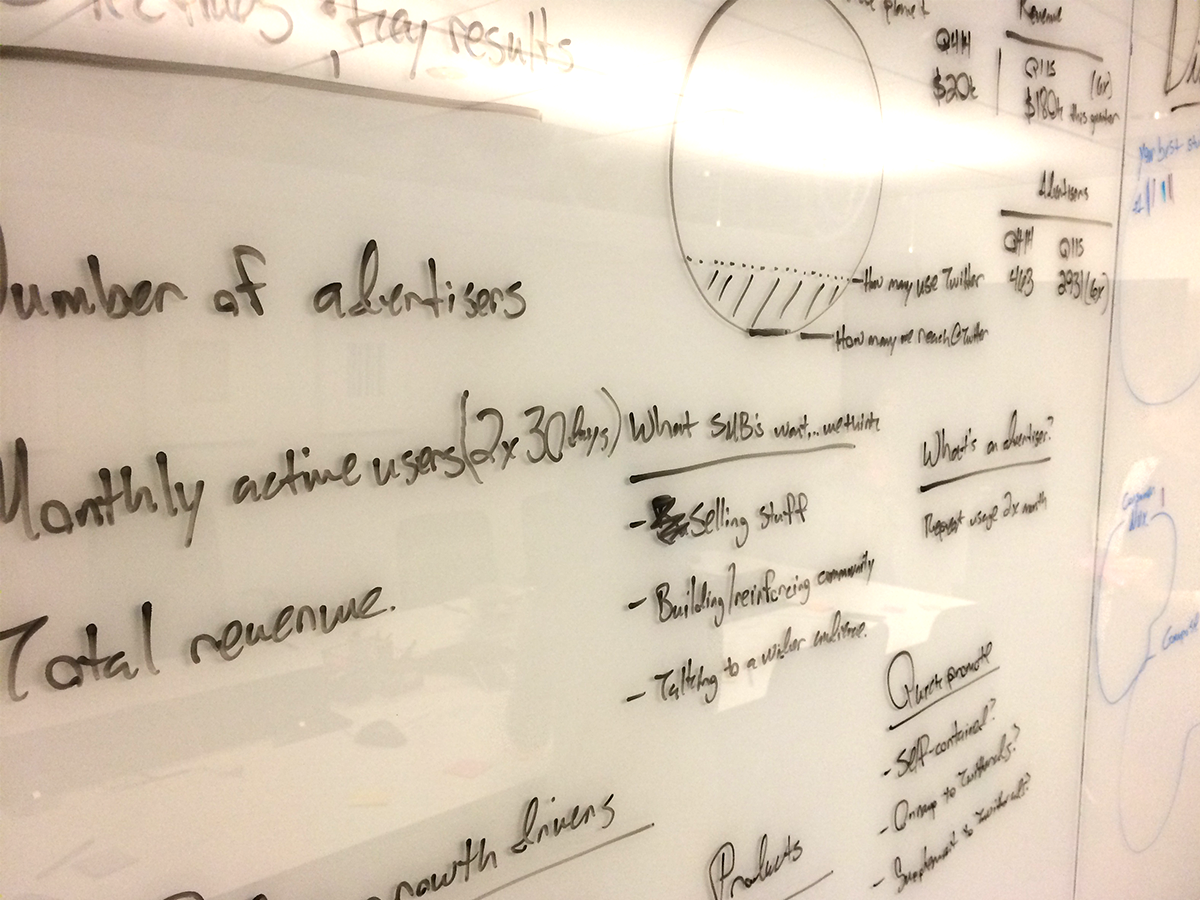 key results
Number of advertisers
Monthly active users (2x 30 days)
Total revenue.
growth drivers
How many use Twitter
How many we reach @Twitter
Q414
$20k
Revenue
Q115
(6x)
$180k this quarter
Advertisers
Q414 Q115
463 2931 (6x)
What SMB's want... methinks
- Selling stuff
- Building/reinforcing community
- Talking to a wider audience.
What's an advertiser?
Repeat usage 2x month
Quick promote
- Self-contained?
- Onramp to Twitter ads?
- Supplement to Twitter ads?
Products